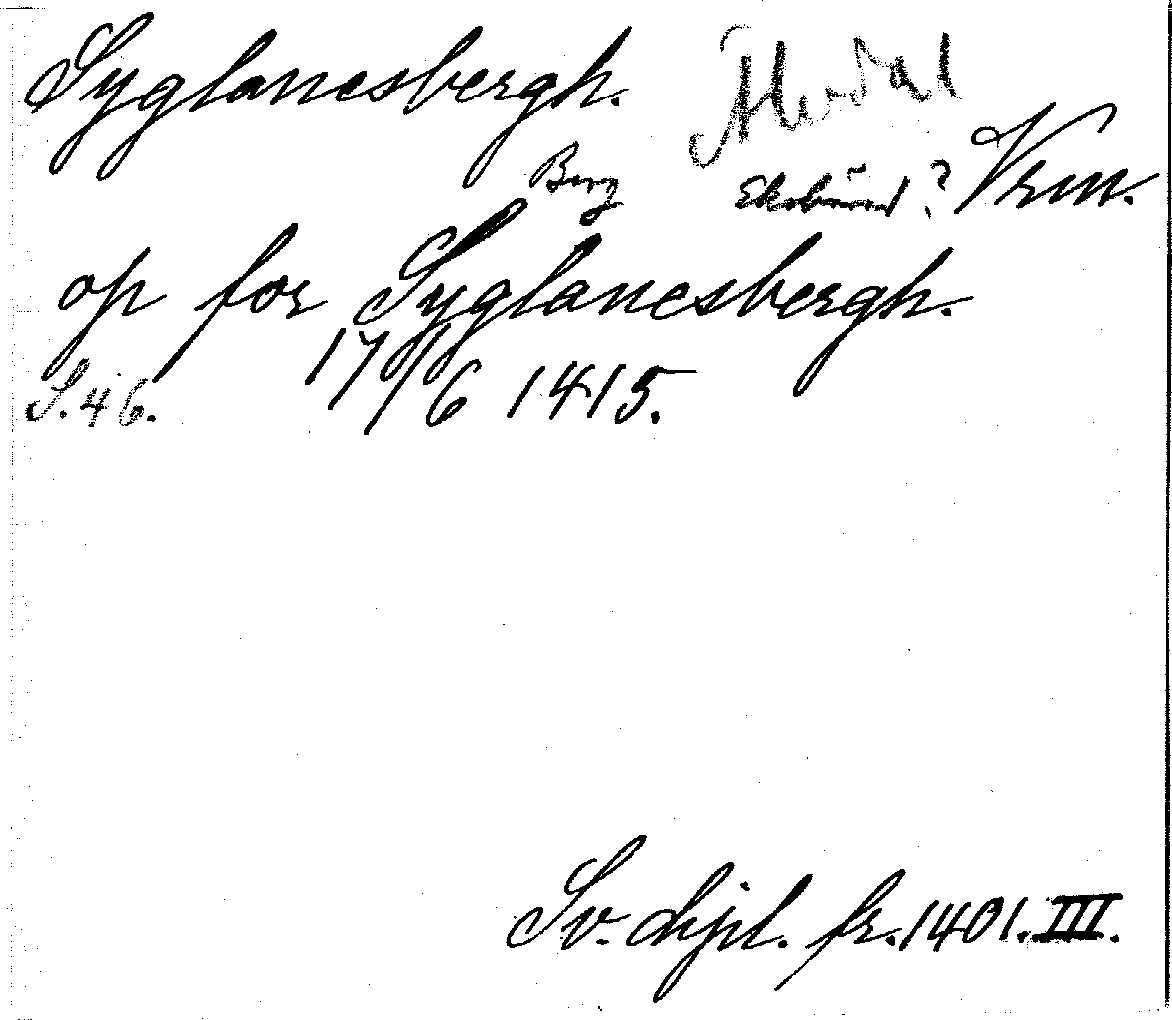 Syglanesbergh. Älvdal
Berg Vrm.
op for Syglanesbergh.
S. 46. 17/6 1415.
Sv. dipl. fr. 1401. III.